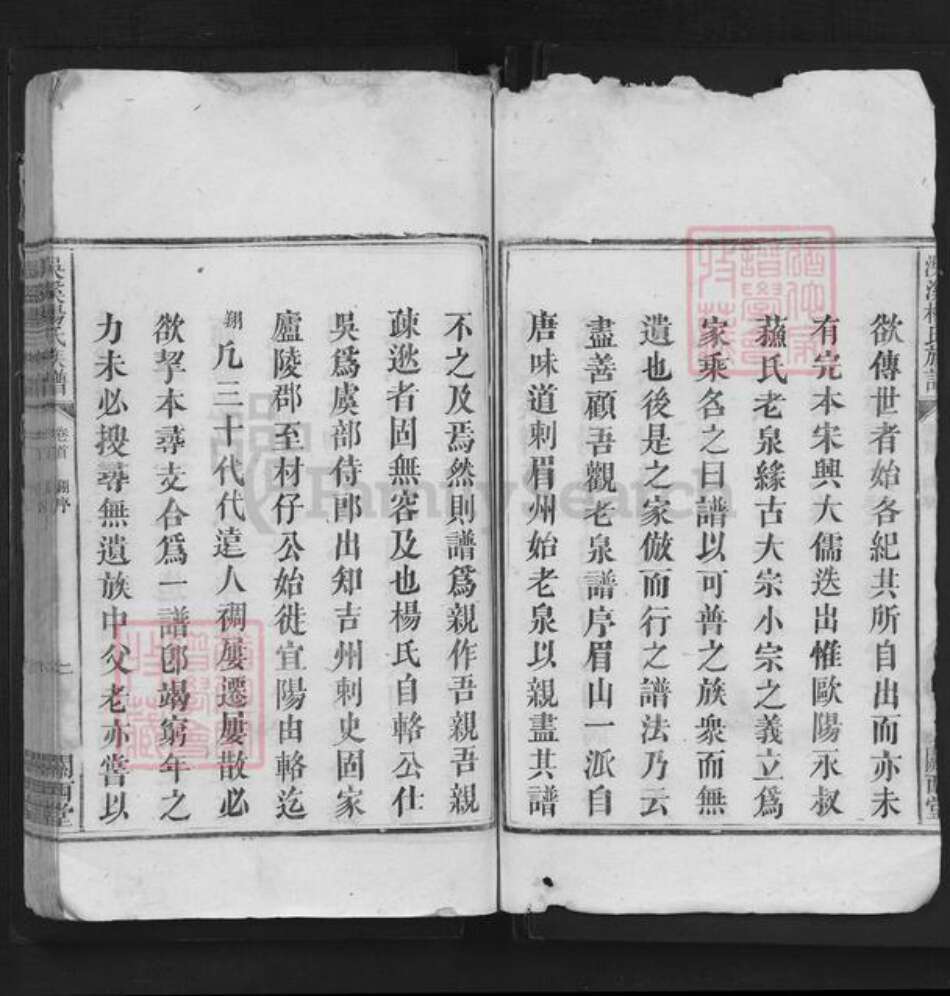 欲傳世者始各紀其所自出而亦未
有完本宋興大儒迭出惟歐陽永叔
蘓氏老泉緣古大宗小宗之義立爲
家乘名之曰譜以可普之族衆而無
遺也後是之家倣而行之譜法乃云
盡善顧吾觀老泉譜序眉山一派自
唐味道刺眉州始老泉以親盡其譜
不之及焉然則譜爲親作吾親吾親
疎逖者固無容及也楊氏自輅公仕
吳爲虞部侍郎出知吉州刺史固家
廬陵郡至材仔公始徙宜陽由輅迄
翔凢三十代代遠人稠屢遷屢散必
欲挈本尋支合爲一譜卽竭窮年之
力未必搜尋無遺族中父老亦嘗以
楊氏族譜
卷首
翔序
七
關西堂
FamilySearch